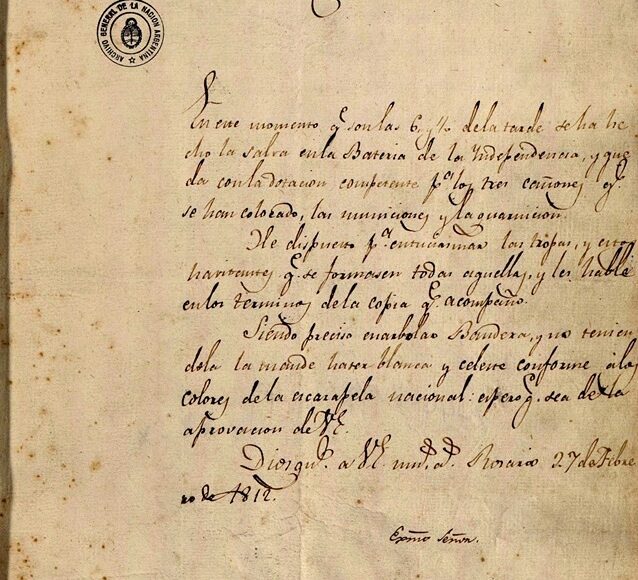 ARCHIVO GENERAL DE LA NACION ARGENTINA
En este momento q.e son las 6 y ½ de la tarde se ha he
cho la salva en la Bateria de la Independencia, y que
da con la dotacion competente p.a los tres cañones q.e
se han colocado, las municiones y la guarnicion.
He dispuesto p.a entusiasmar las tropas, y estos
havitantes q.e se formasen todas aquellas, y les hablé
en los terminos de la copia q.e acompaño.
Siendo preciso enarbolar Bandera, y no tenien
dola la mandé hacer blanca y celeste conforme á los
colores de la escarapela nacional: espero q.e sea de la
aprovacion de VE.
Dios gu.e a VE. m.s a.s Rosario 27 de Febre
ro de 1812.
Exmo Señor.